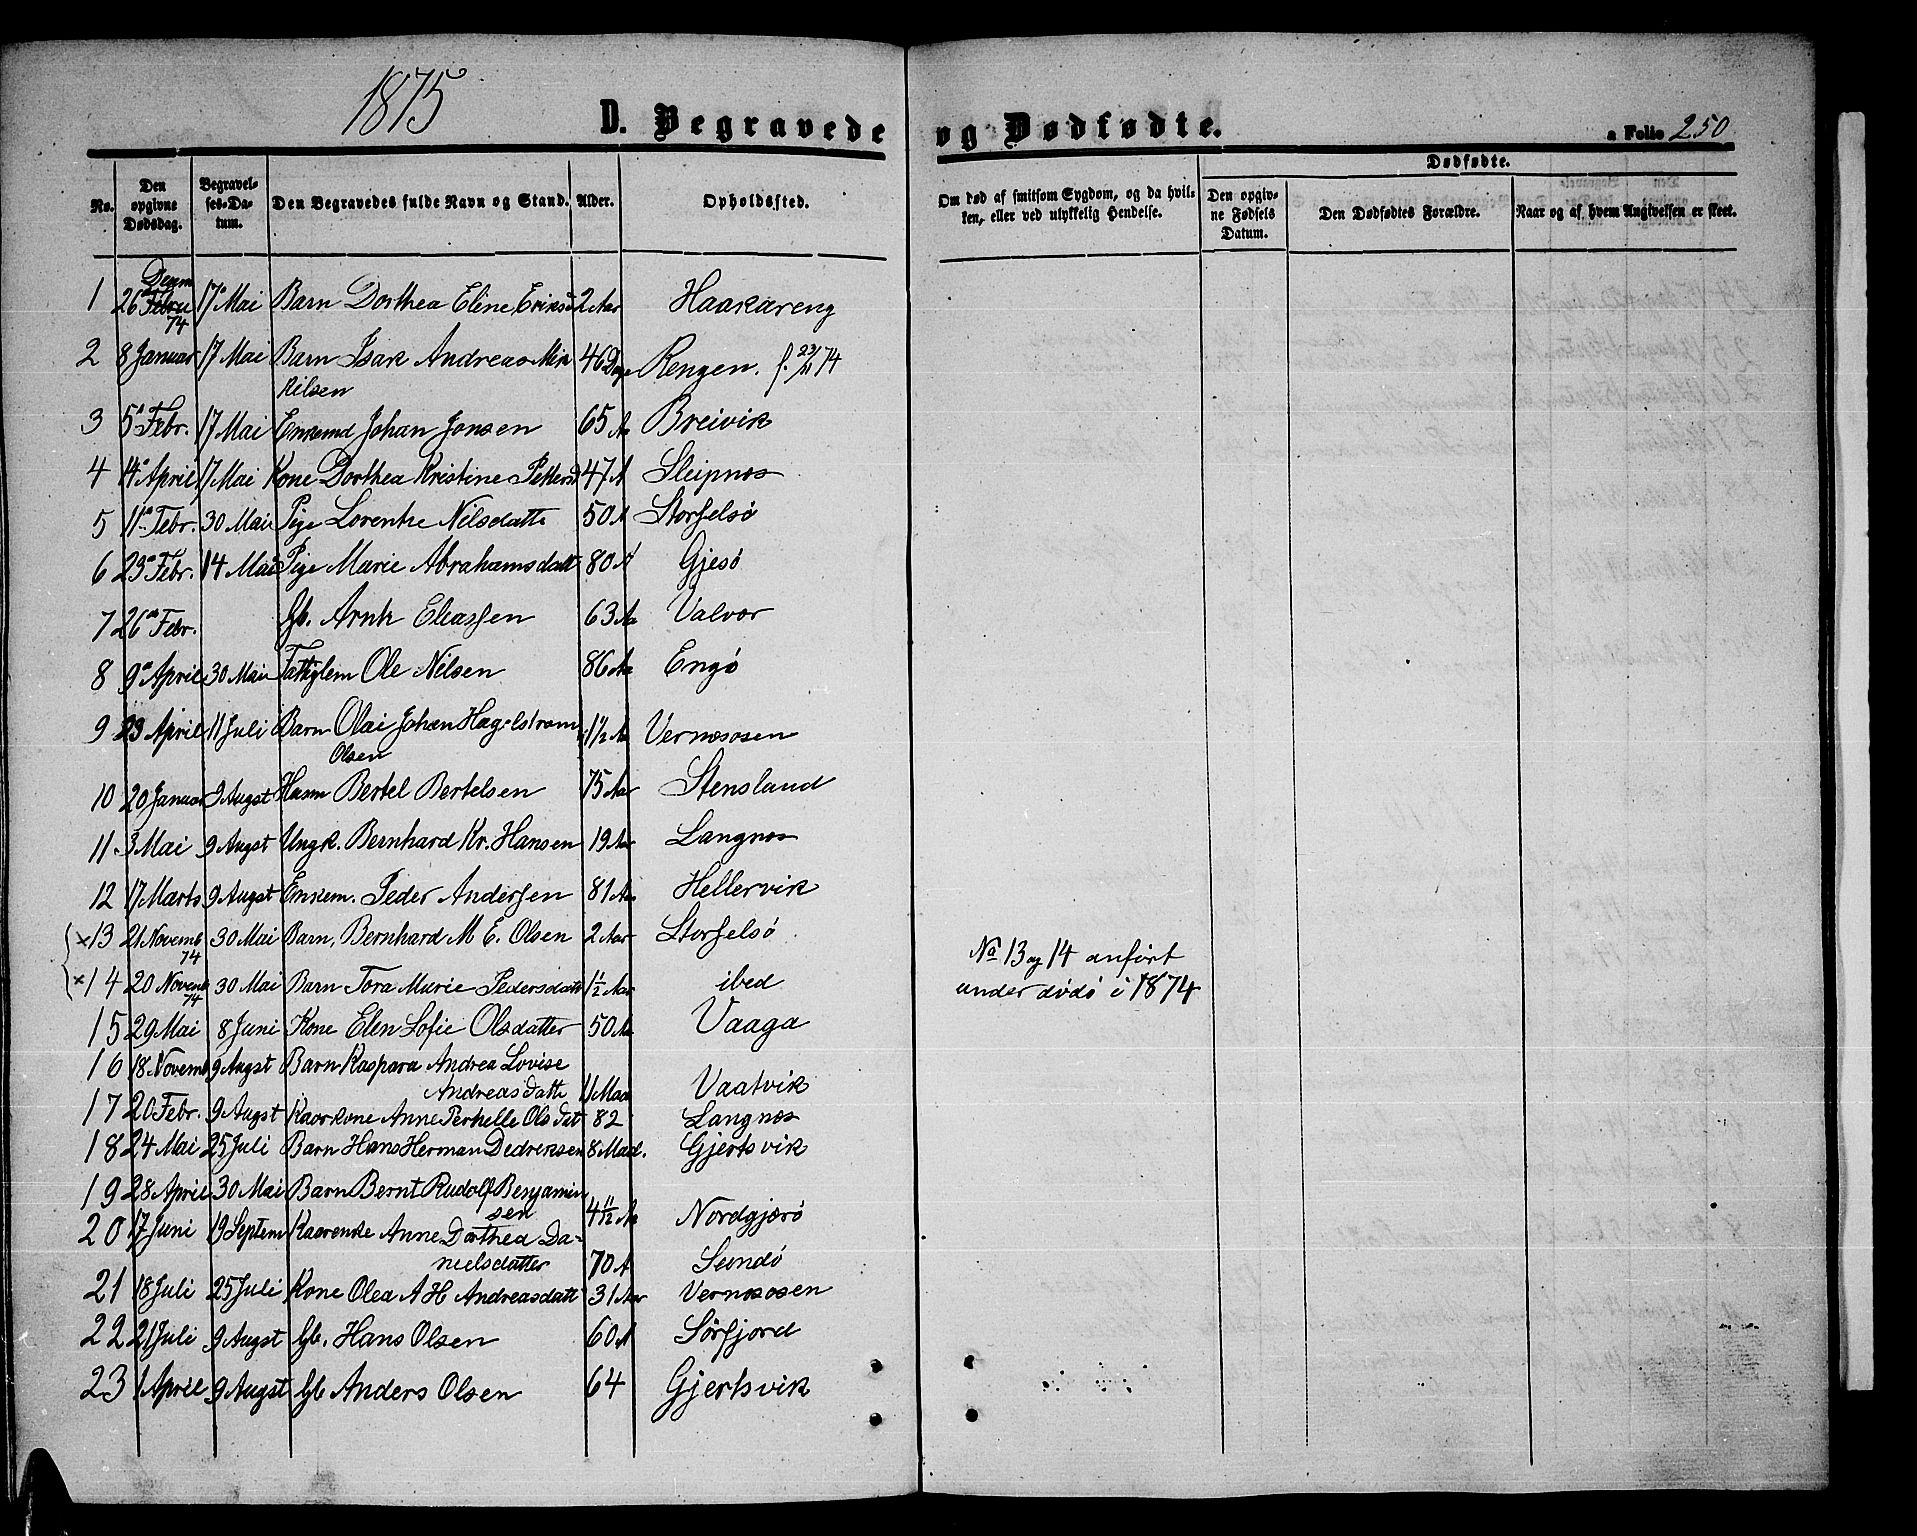 1875
D. Begravede og Dødfødte. a Folio 250
No. | Den opgivne Dødsdag. | Begravelses-Datum. | Den Begravedes fulde Navn og Stand. | Alder. | Opholdssted. | Om død af smitsom Sygdom, og da hvilken, eller ved ulykkelig Hendelse. | Dødfødte. | Den opgivne Fødsels Datum. | Den Dødfødtes Forældre. | Naar og af hvem Angivelsen er skeet.
1 26 Decem Febru 74 17 Mai Barn Dorthea Eline Eriksd 2 Aar Haakareng
2 8 Januar 17 Mai Barn Isak Andreas Mik 46 Dage Rengen. f. 23/11 74
kelsen
3 5 Febr. 17 Mai Enkemd Johan Jonsen 65 Aa Breivik
4 14 April 17 Mai Kone Dorthea Kristine Petters 47 A Sleipnæs
5 11 Febr. 30 Mai Pige Lorentse Nilsdatte 50 A Storselsö
6 23 Febr. 14 Mai Pige Marie Abrahamsdatt 80 A Gjesö
7 26 Febr. Gb. Arnt Eliassen 63 Aa Valvær
8 9 April 30 Mai Fattiglem Ole Nilsen 86 Aa Engö
9 23 April 11 Juli Barn Olai Johan Hagelstrøm 1½ Aa Vernæsosen
Olsen
10 20 Januar 9 Augst Husm Bertel Bertelsen 75 Aar Stensland
11 3 Mai 9 Augst Ungk. Bernhard Kr. Hansen 19 Aar Langnæs
12 17 Marts 9 Augst Enkem. Peder Andersen 81 Aar Hellervik
×13 21 Novemb 74 30 Mai Barn, Bernhard M. E. Olsen 2 Aar Storselsö. No 13 og 14 anført
×14 20 Novemb 74 30 Mai Barn Tora Marie Pedersdatt 1½ Aar ibed under døde i 1874
15 29 Mai 8 Juni Kone Elen Sofie Olsdatter 50 Aa Vaaga
16 18 Novemb 9 Augst Barn Kaspara Andrea Lovise
Andreasdatte 11 Maa Vaatvik
17 20 Febr. 9 Augst Kaarkone Anne Pernelle Olsdat 82 Langnæs
18 24 Mai 25 Juli Barn Hans Herman Dedreksen 8 Maad. Gjertsvik
19 28 April 30 Mai Barn Bernt Rudolf Benjamin
sen 4½ Aa Nordgjærö
20 17 Juni 19 Septem Kaarenke Anne Dorthea Da-
nielsdatter 70 A Sundö
21 18 Juli 25 Juli Kone Olea A H Andreasdatt 31 Aar Vernæsosen
22 21 Juli 9 Augst Gb. Hans Olsen 60 A Sörfjord
23 1 April 9 Augst Gb Anders Olsen 64 Gjertsvik